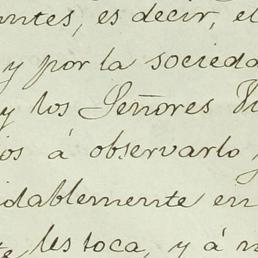 ntes, es decir, el
y por la socieda
y los Señores Vi
ios á observarlo y
idablemente en
te les toca, y á n